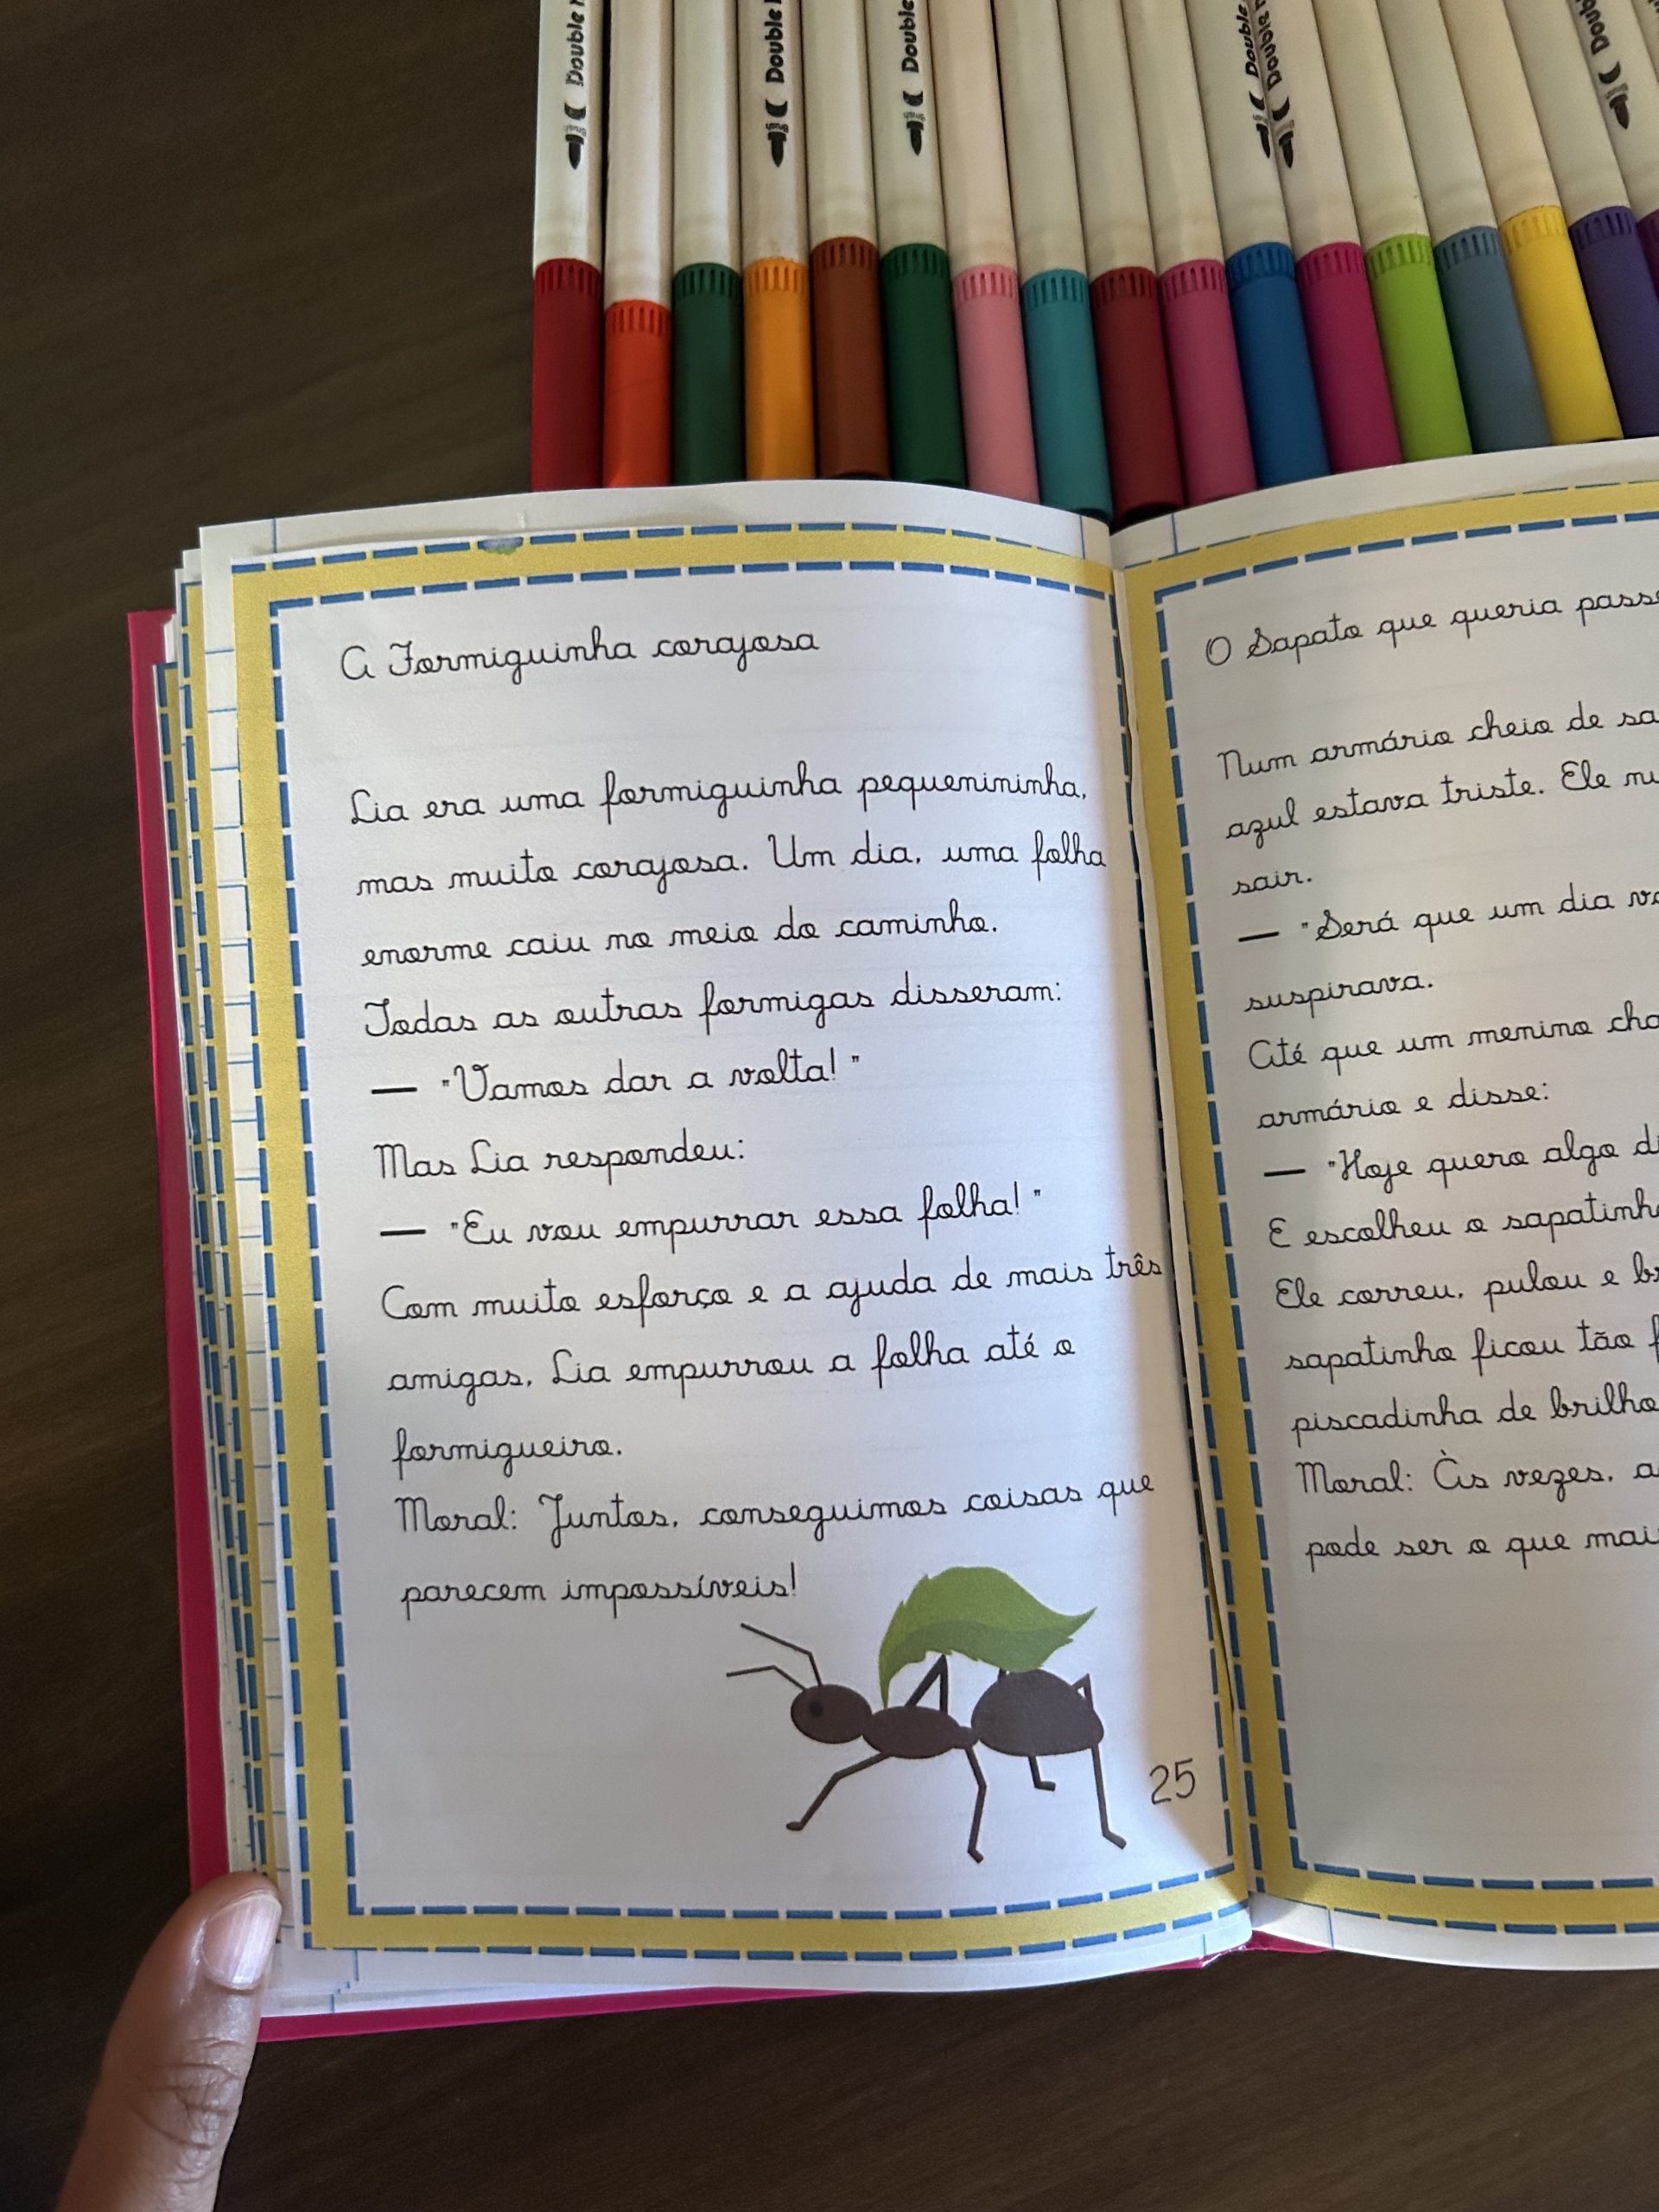 Double
Double
Double
Double
Double
Doub
A Formiguinha corajosa
Lia era uma formiguinha pequenininha,
mas muito corajosa. Um dia, uma folha
enorme caiu no meio do caminho.
Todas as outras formigas disseram:
— "Vamos dar a volta! "
Mas Lia respondeu:
— "Eu vou empurrar essa folha! "
Com muito esforço e a ajuda de mais três
amigas, Lia empurrou a folha até o
formigueiro.
Moral: Juntos, conseguimos coisas que
parecem impossíveis!
25
O Sapato que queria
Num armário cheio de
azul estava triste. Ele
sair.
— "Será que um dia
suspirava.
Até que um menino
armário e disse:
— "Hoje quero algo
E escolheu o
Ele correu, pulou e
sapatinho ficou tão
piscadinha de brilho
Moral: Às vezes,
pode ser o que